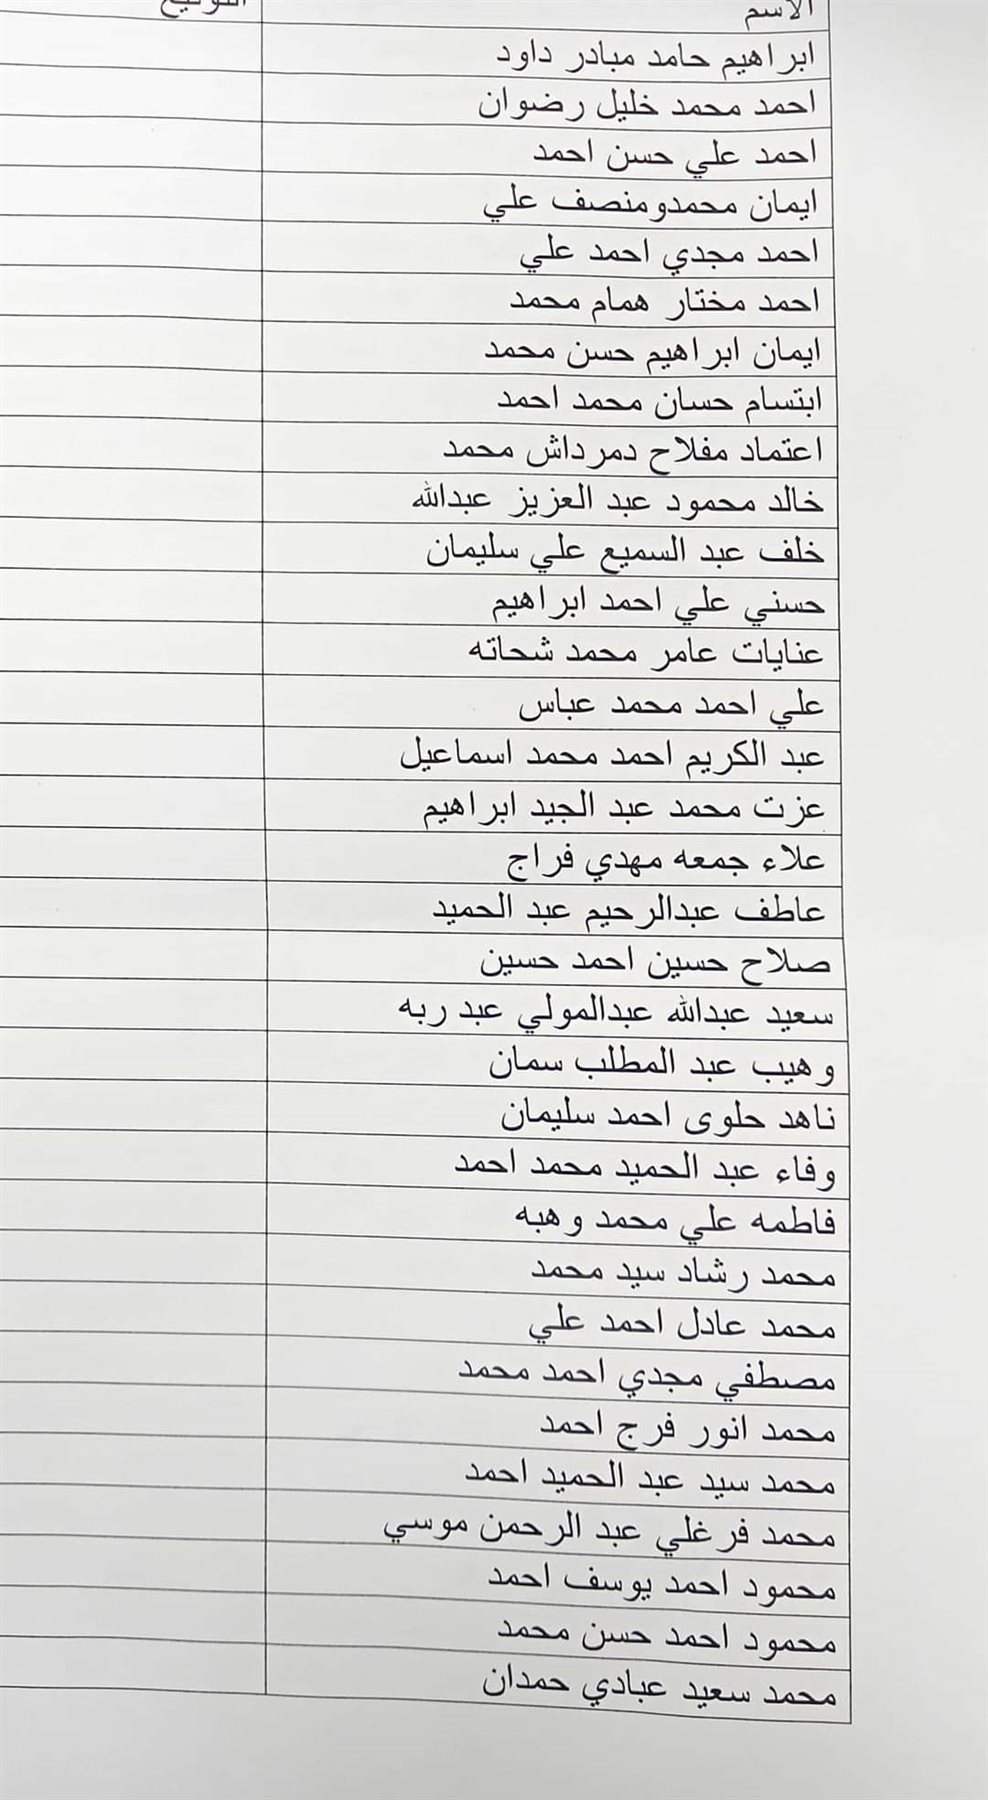 الاسم
التوقيع
ابراهيم حامد مبادر داود
احمد محمد خليل رضوان
احمد علي حسن احمد
ايمان محمدومنصف علي
احمد مجدي احمد علي
احمد مختار همام محمد
ايمان ابراهيم حسن محمد
ابتسام حسان محمد احمد
اعتماد مفلاح دمرداش محمد
خالد محمود عبد العزيز عبدالله
خلف عبد السميع علي سليمان
حسني علي احمد ابراهيم
عنايات عامر محمد شحاته
علي احمد محمد عباس
عبد الكريم احمد محمد اسماعيل
عزت محمد عبد الجيد ابراهيم
علاء جمعه مهدي فراج
عاطف عبدالرحيم عبد الحميد
صلاح حسين احمد حسين
سعيد عبدالله عبدالمولي عبد ربه
وهيب عبد المطلب سمان
ناهد حلوى احمد سليمان
وفاء عبد الحميد محمد احمد
فاطمه علي محمد وهبه
محمد رشاد سيد محمد
محمد عادل احمد علي
مصطفي مجدي احمد محمد
محمد انور فرج احمد
محمد سيد عبد الحميد احمد
محمد فرغلي عبد الرحمن موسي
محمود احمد يوسف احمد
محمود احمد حسن محمد
محمد سعيد عبادي حمدان